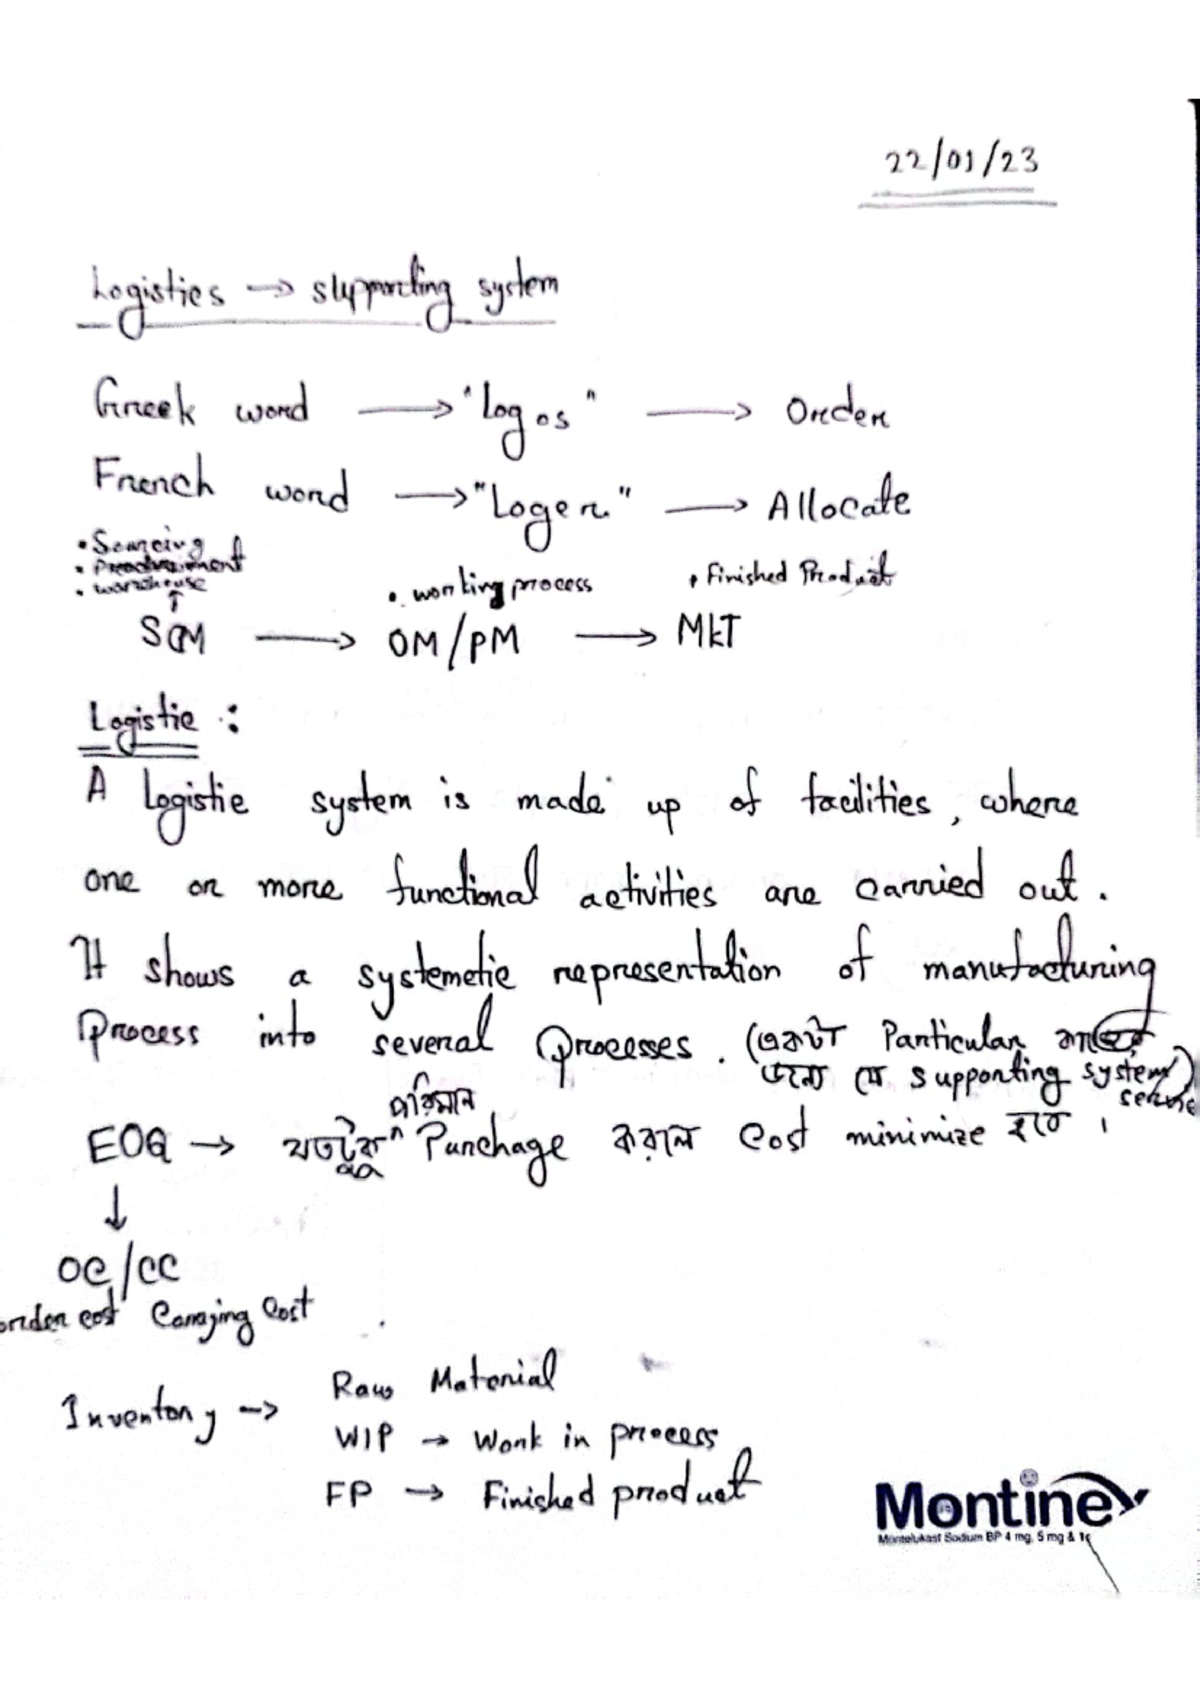 22/01/23
Logistics → supporting system
Greek word → "Logos" → Order
French word → "Loger" → Allocate
• Sourcing
• Procurement
• warehouse
• working process
• Finished Product
SCM → OM/PM → MKT
Logistic :
A logistic system is made up of facilities, where
one or more functional activities are carried out.
It shows a systemetic representation of manufacturing
Process into several processes. (একটা Particular কাজের
জন্য যে supporting system
service)
পরিমান
EOQ → যতটুকু ^ Purchage করলে cost minimize হবে।
↓
OC/CC
order cost Carrying Cost
Inventory → Raw Material
WIP → Work in process
FP → Finished product
Montine
Montelukast Sodium BP 4 mg, 5 mg & 10